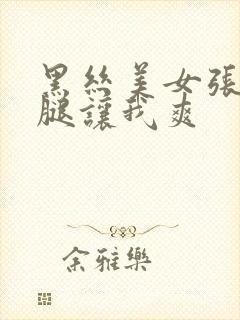 黑絲美女張
腿讓我爽
余雅樂